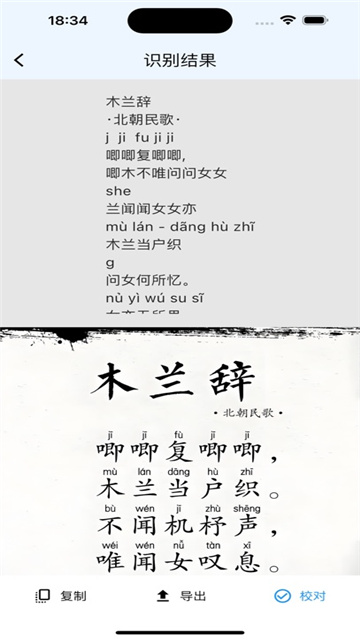 18:34
识别结果
木兰辞
·北朝民歌·
j ji fu ji ji
唧唧复唧唧,
唧木不唯问问女女
she
兰闻闻女女亦
mù lán - dãng hù zhĩ
木兰当户织
g
问女何所忆。
nǔ yì wú su sĩ
女亦无所思
木兰辞
·北朝民歌·
jī jī fù jī jī
唧唧复唧唧，
mù lán dāng hù zhī
木兰当户织。
bù wén jī zhù shēng
不闻机杼声，
wéi wén nǚ tàn xī
唯闻女叹息。
复制 导出 校对